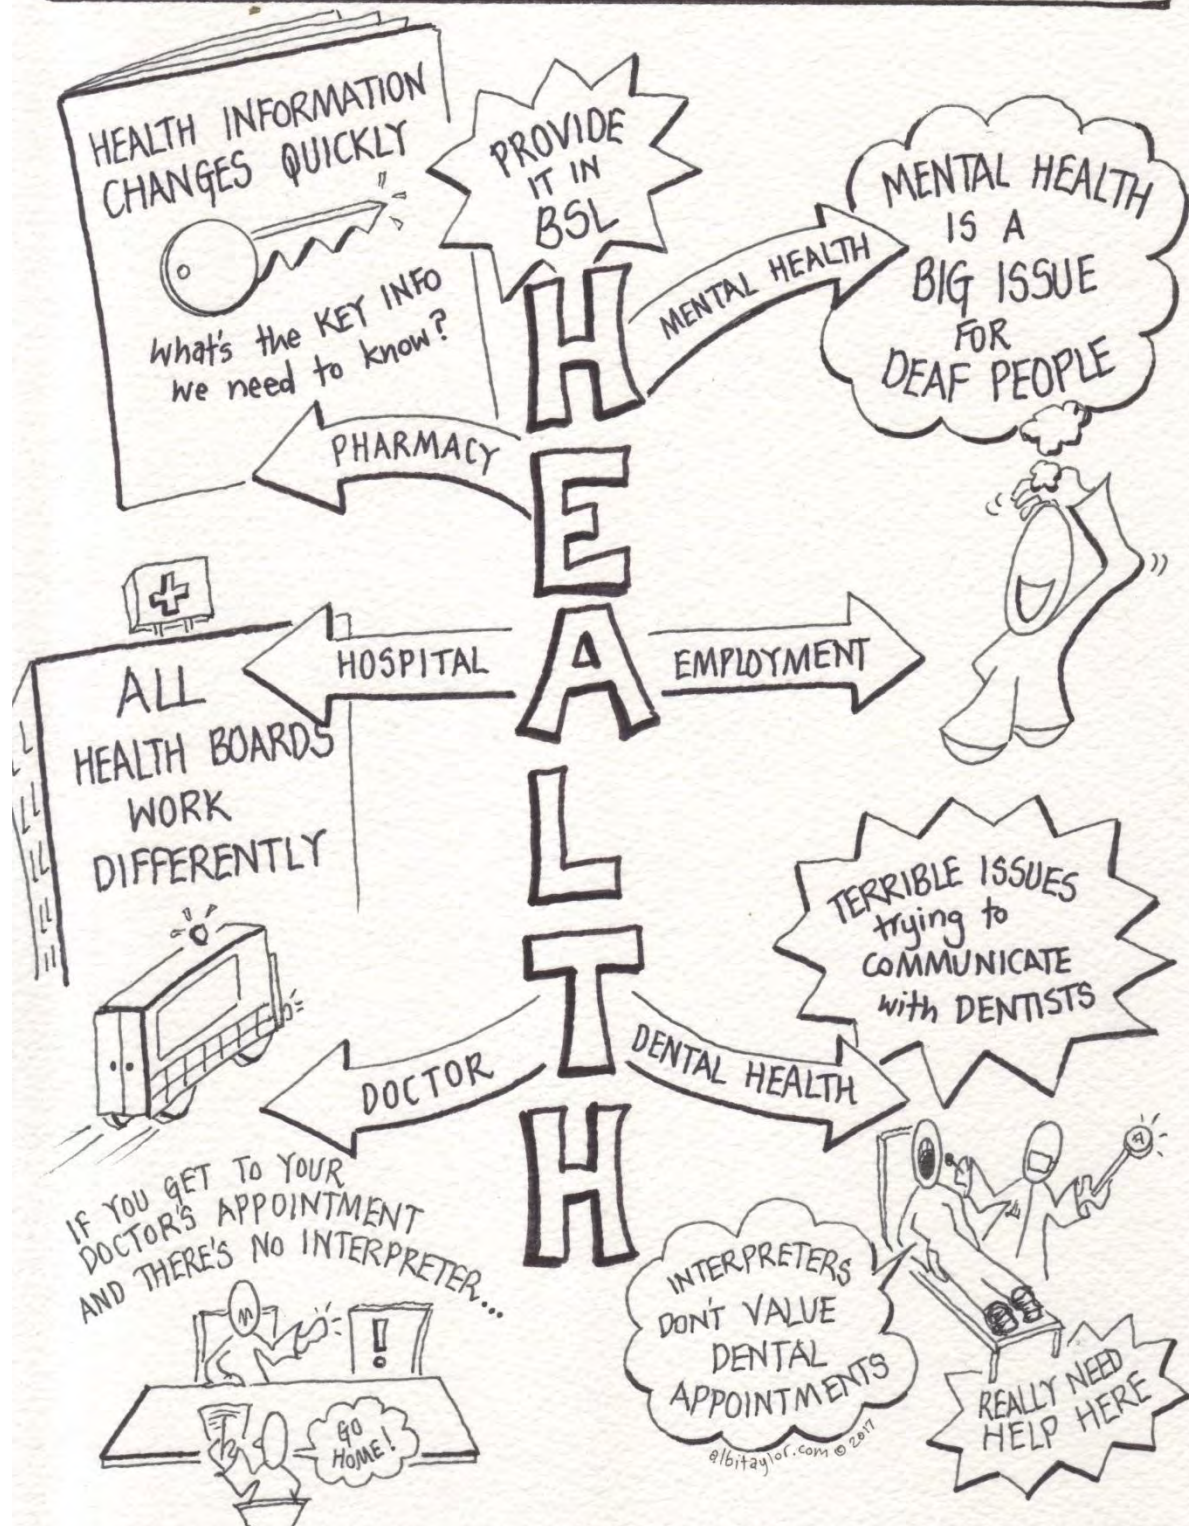 HEALTH INFORMATION
CHANGES QUICKLY
what's the KEY INFO
we need to know?
PROVIDE
IT IN
BSL
HEALTH
MENTAL HEALTH
MENTAL HEALTH
IS A
BIG ISSUE
FOR
DEAF PEOPLE
PHARMACY
HOSPITAL
EMPLOYMENT
ALL
HEALTH BOARDS
WORK
DIFFERENTLY
TERRIBLE ISSUES
trying to
COMMUNICATE
with DENTISTS
DOCTOR
DENTAL HEALTH
IF YOU GET TO YOUR
DOCTOR'S APPOINTMENT
AND THERE'S NO INTERPRETER...
!
GO
HOME!
INTERPRETERS
DON'T VALUE
DENTAL
APPOINTMENTS
REALLY NEED
HELP HERE
albitaylor.com © 2017